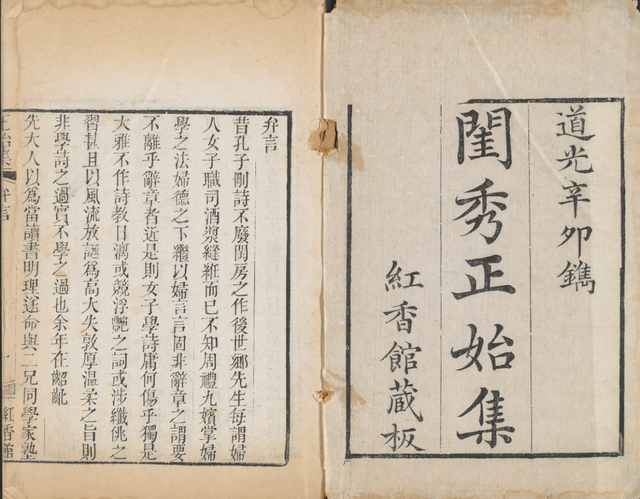 道光辛卯鐫
閨秀正始集
紅香館蔵板
弁言
昔孔子刪詩不廢閨房之作後世鄉先生每謂婦
人女子職司酒漿縫紝而已不知周禮九嬪掌婦
學之法婦德之下繼以婦言言固非辭章之謂要
不離乎辭章者近是則女子學詩庸何傷乎獨是
大雅不作詩教日漓或競浮艷之詞或涉纖佻之
習甚且以風流放誕為高大失敦厚温柔之旨則
非學詩之過實不學之過也余年在齠齔
先大人以為當讀書明理遂命與二兄同學家塾
正始集
弁言
一
紅香館